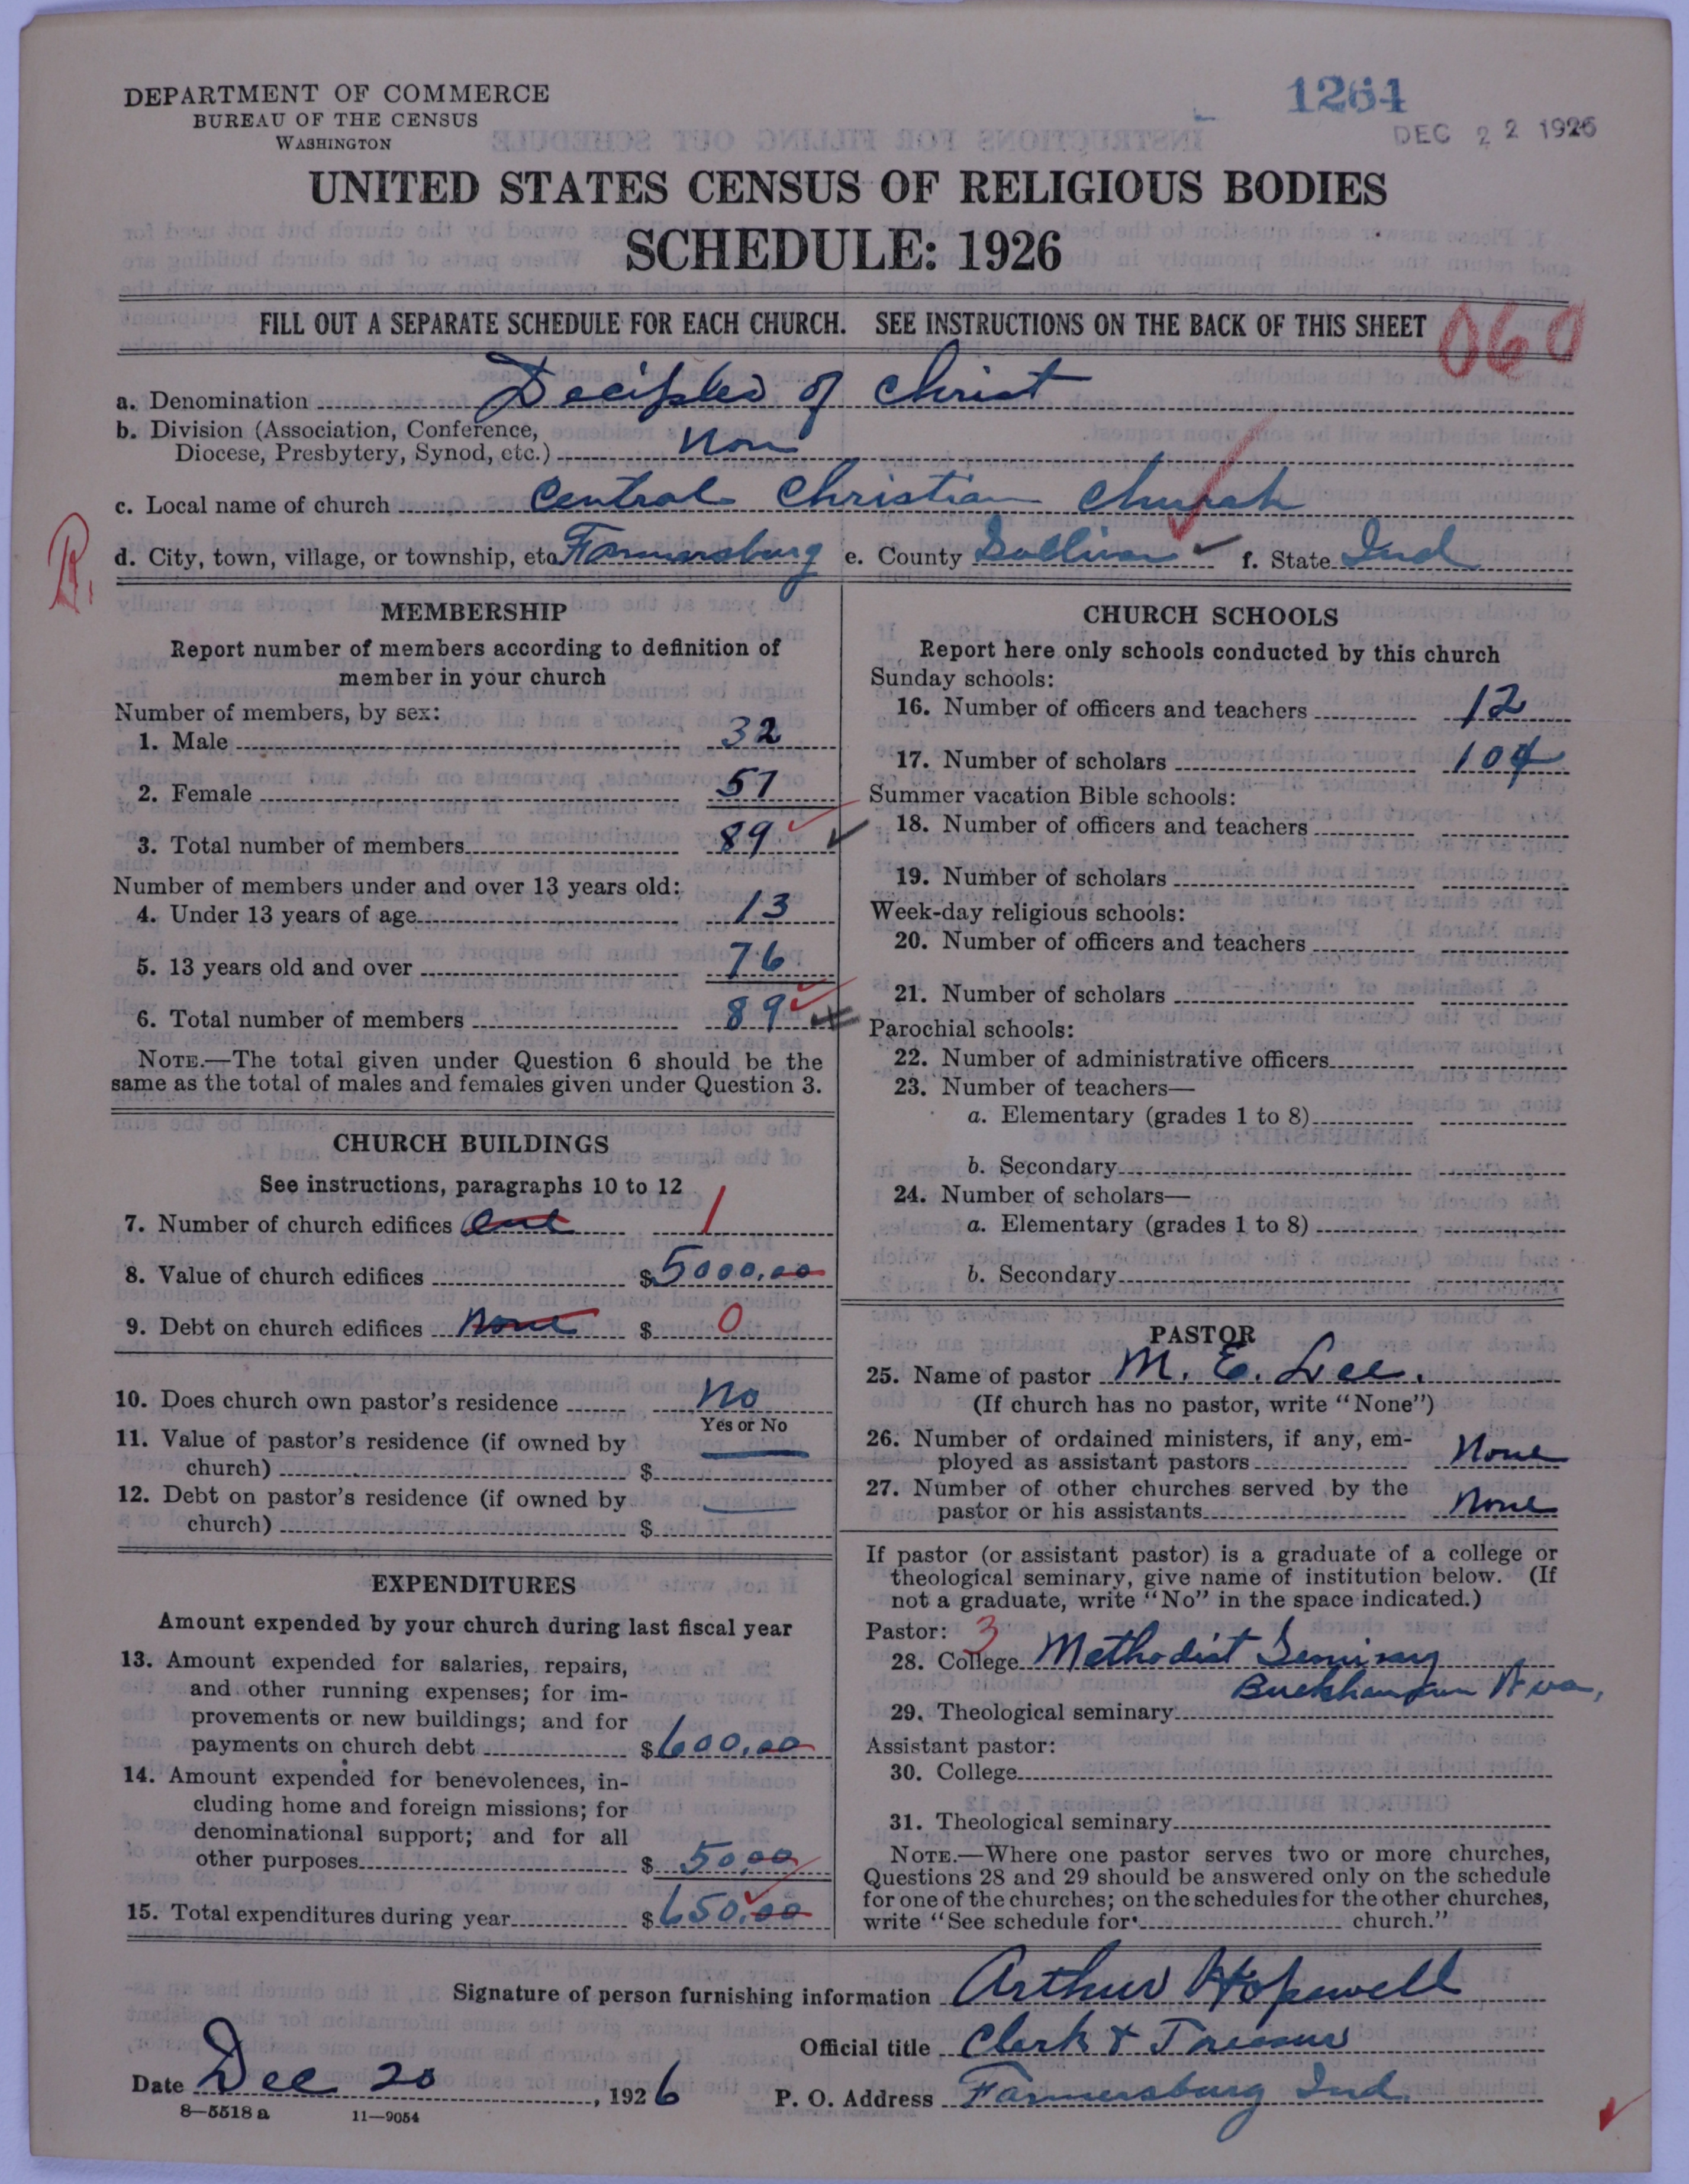 1264
DEC 22 1926
DEPARTMENT OF COMMERCE
BUREAU OF THE CENSUS
WASHINGTON
UNITED STATES CENSUS OF RELIGIOUS BODIES
SCHEDULE: 1926
FILL OUT A SEPARATE SCHEDULE FOR EACH CHURCH. SEE INSTRUCTIONS ON THE BACK OF THIS SHEET
060
a. Denomination Deciples of Christ
b. Division (Association, Conference,
Diocese, Presbytery, Synod, etc.) Non
c. Local name of church Central Christian Church
d. City, town, village, or township, etc Farmersburg e. County Sullivan f. State Ind
R.
MEMBERSHIP
Report number of members according to definition of
member in your church
Number of members, by sex:
1. Male 32
2. Female 57
3. Total number of members 89
Number of members under and over 13 years old:
4. Under 13 years of age 13
5. 13 years old and over 76
6. Total number of members 89
NOTE.—The total given under Question 6 should be the
same as the total of males and females given under Question 3.
CHURCH BUILDINGS
See instructions, paragraphs 10 to 12
7. Number of church edifices one 1
8. Value of church edifices $5000.00
9. Debt on church edifices None $ 0
10. Does church own pastor's residence No
Yes or No
11. Value of pastor's residence (if owned by
church) $
12. Debt on pastor's residence (if owned by
church) $
EXPENDITURES
Amount expended by your church during last fiscal year
13. Amount expended for salaries, repairs,
and other running expenses; for im-
provements or new buildings; and for
payments on church debt $600.00
14. Amount expended for benevolences, in-
cluding home and foreign missions; for
denominational support; and for all
other purposes $ 50.00
15. Total expenditures during year $650.00
CHURCH SCHOOLS
Report here only schools conducted by this church
Sunday schools:
16. Number of officers and teachers 12
17. Number of scholars 104
Summer vacation Bible schools:
18. Number of officers and teachers
19. Number of scholars
Week-day religious schools:
20. Number of officers and teachers
21. Number of scholars
Parochial schools:
22. Number of administrative officers
23. Number of teachers—
a. Elementary (grades 1 to 8)
b. Secondary
24. Number of scholars—
a. Elementary (grades 1 to 8)
b. Secondary
PASTOR
25. Name of pastor M. E. Lee.
(If church has no pastor, write "None")
26. Number of ordained ministers, if any, em-
ployed as assistant pastors None
27. Number of other churches served by the
pastor or his assistants None
If pastor (or assistant pastor) is a graduate of a college or
theological seminary, give name of institution below. (If
not a graduate, write "No" in the space indicated.)
Pastor: 3
28. College Methodist
29. Theological seminary
Assistant pastor:
30. College
31. Theological seminary
NOTE.—Where one pastor serves two or more churches,
Questions 28 and 29 should be answered only on the schedule
for one of the churches; on the schedules for the other churches,
write "See schedule for church."
Signature of person furnishing information Arthur Hopewell
Official title Clerk &
Date Dec 20, 1926 P. O. Address Farmersburg Ind
8—5518 a 11—9054